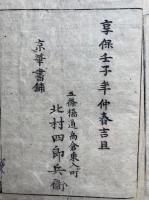 享保壬子年仲春吉旦
五條橋通高倉東入町
京華書鋪
北村四郎兵衛